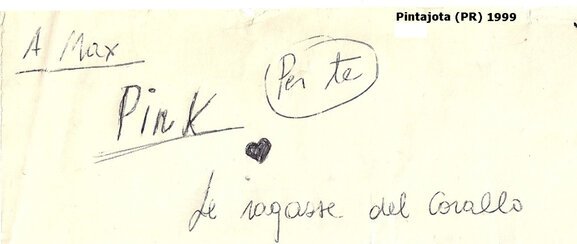 Pintajota (PR) 1999
A Max
Per te
Pink
Le ragasse del Corallo